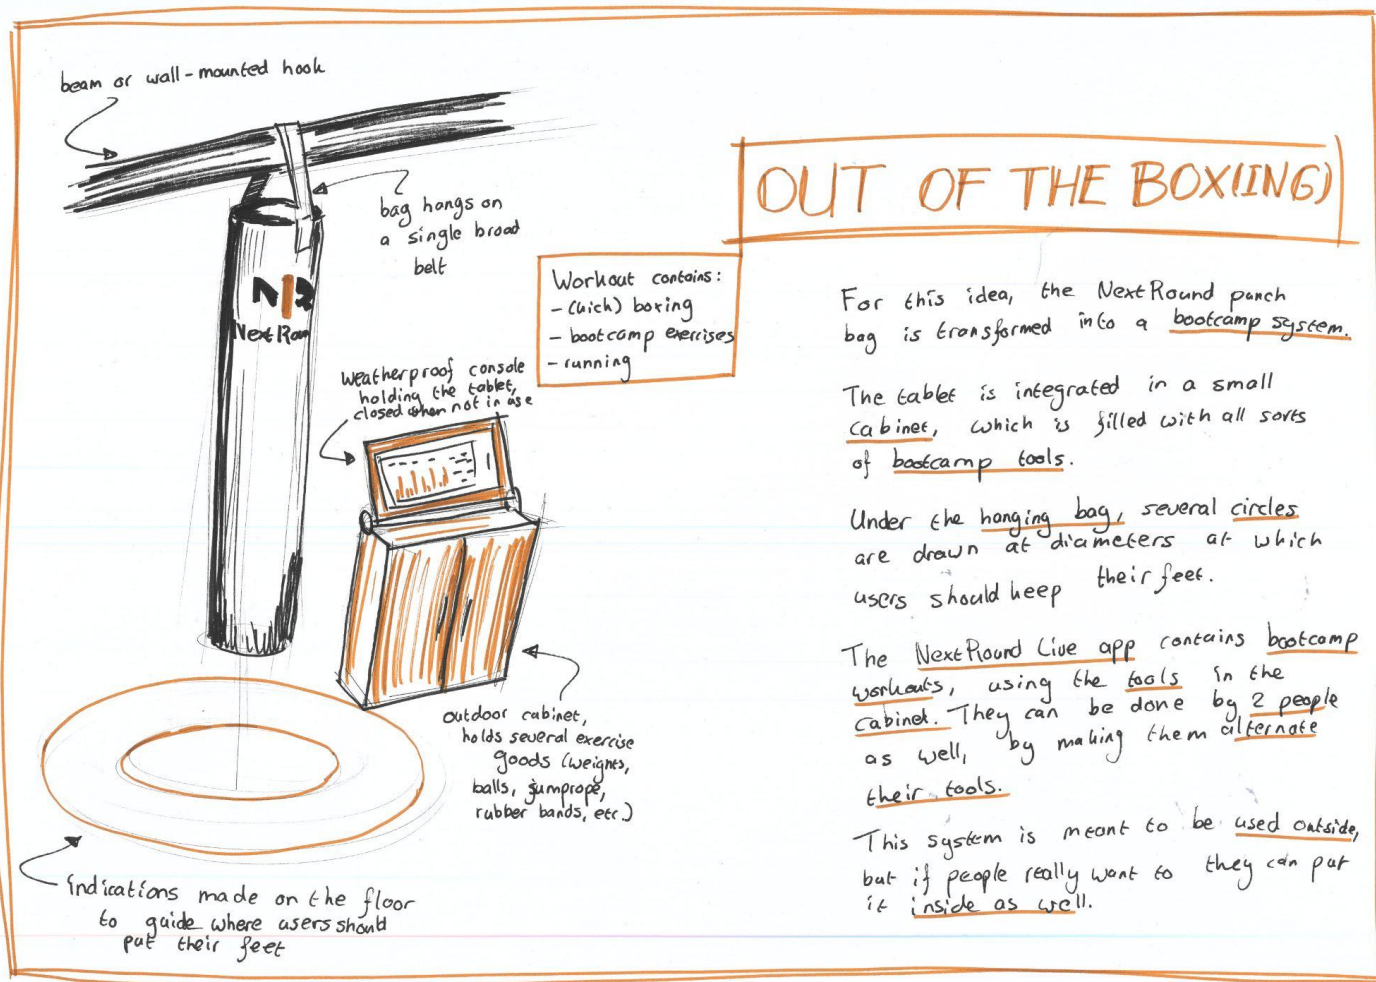 beam or wall-mounted hook
bag hangs on
a single broad
belt
N|R
NextRoun
OUT OF THE BOX(ING)
Workout contains:
- (kick) boxing
- bootcamp exercises
- running
weatherproof console
holding the tablet,
closed when not in use
outdoor cabinet,
holds several exercise
goods (weights,
balls, jumprope,
rubber bands, etc.)
indications made on the floor
to guide where users should
put their feet
For this idea, the NextRound punch
bag is transformed into a bootcamp system.
The tablet is integrated in a small
cabinet, which is filled with all sorts
of bootcamp tools.
Under the hanging bag, several circles
are drawn at diameters at which
users should keep their feet.
The NextRound Live app contains bootcamp
workouts, using the tools in the
cabinet. They can be done by 2 people
as well, by making them alternate
their tools.
This system is meant to be used outside,
but if people really want to they can put
it inside as well.